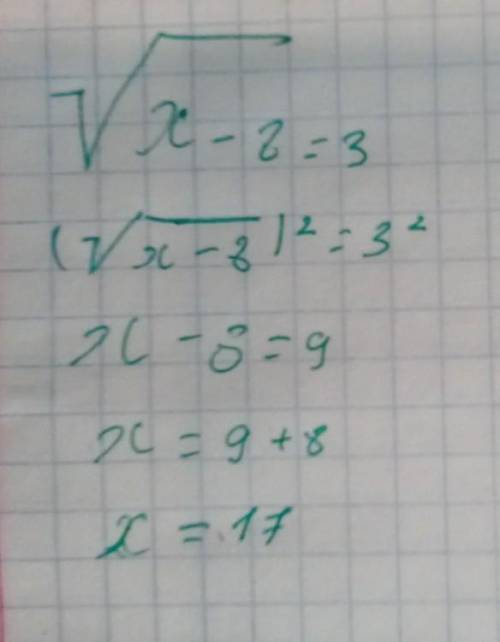 √x - 8 = 3
(√x - 8)² = 3²
x - 8 = 9
x = 9 + 8
x = 17